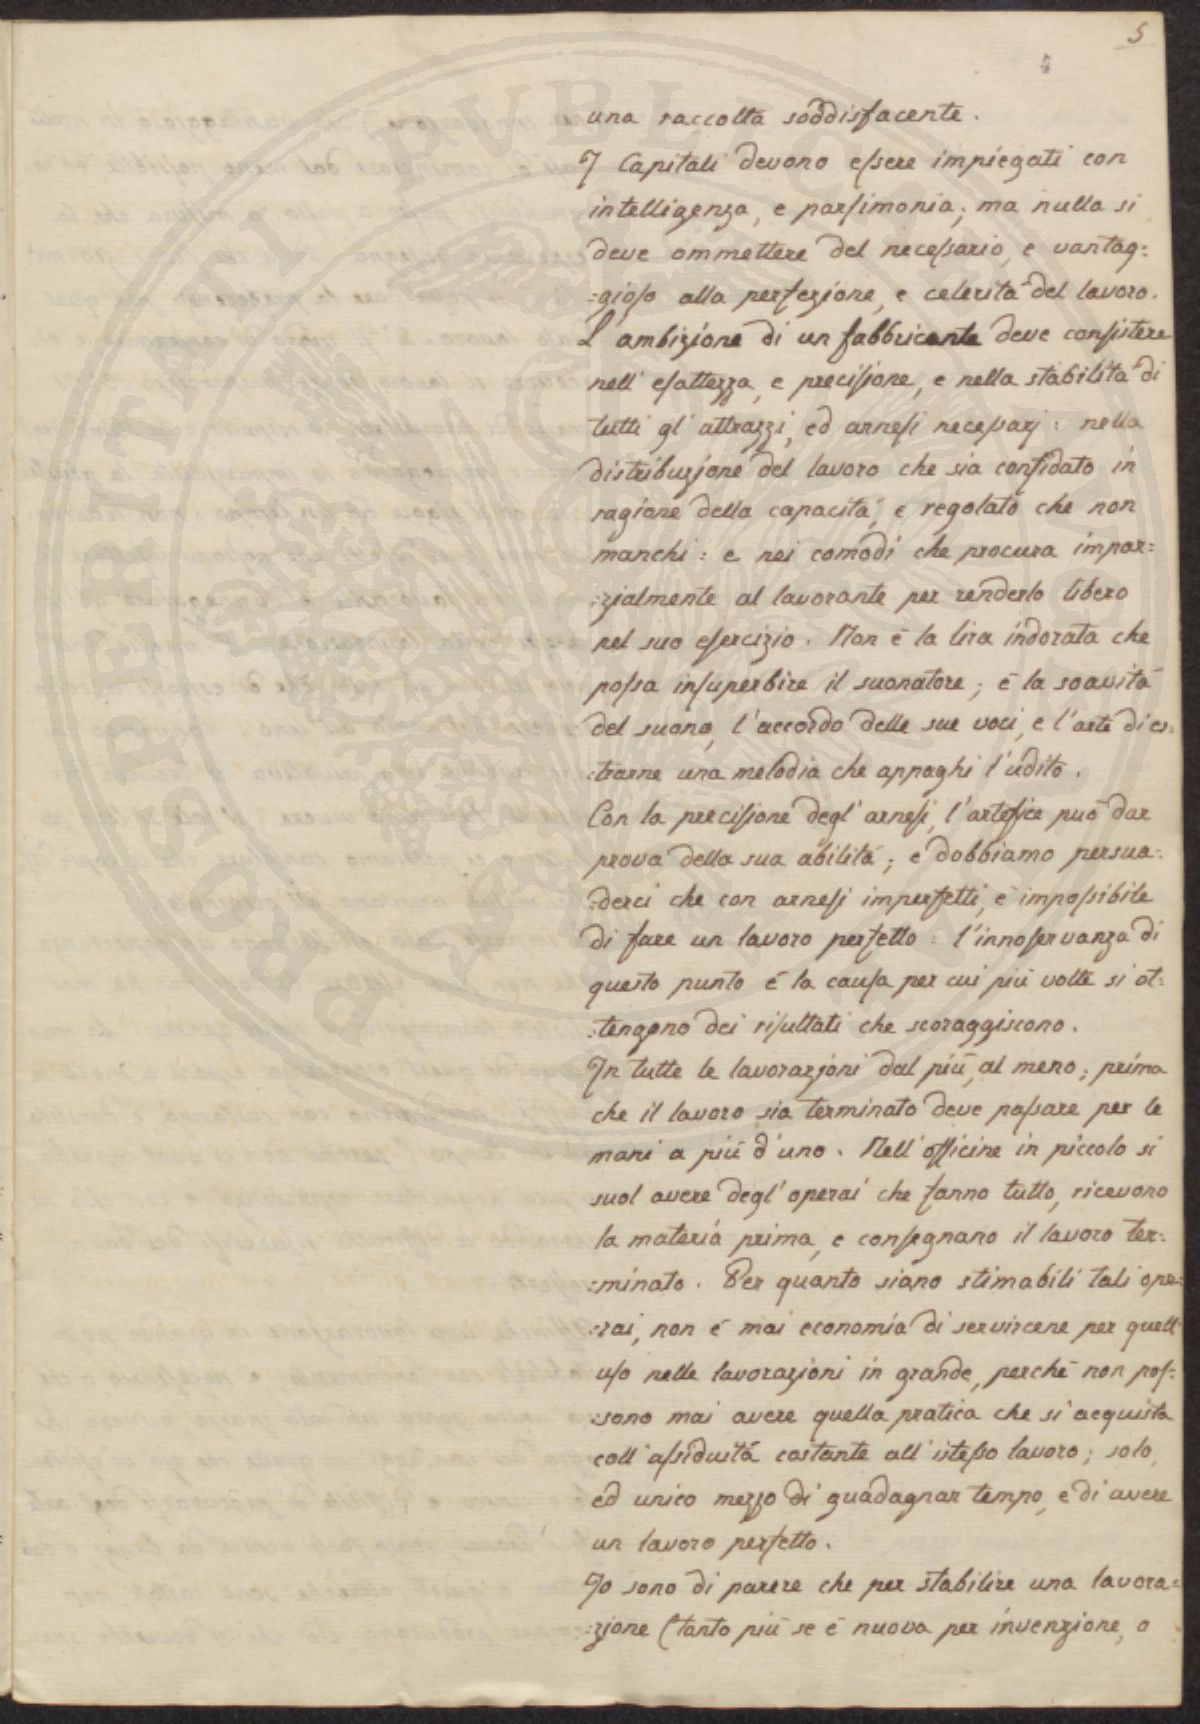 5
4
una raccolta soddisfacente.
I Capitali devono eſsere impiegati con
intelligenza, e parſimonia; ma nulla si
deve ommettere del neceſsario, e vantag:
:gioſo alla perfezione, e celerità del lavoro.
L'ambizione di un fabbricante deve conſistere
nell'eſattezza, e preciſione, e nella stabilità di
tutti gl'attrazzi, ed arneſi neceſsarj: nella
distribuzione del lavoro che sia confidato in
ragione della capacità, e regolato che non
manchi: e nei comodi che procura impar:
:zialmente al lavorante per renderlo libero
nel suo eſercizio. Non è la lira indorata che
poſsa inſuperbire il suonatore; è la soavità
del suono, l'accordo delle sue voci, e l'arte di es:
:trarne una melodia che appaghi l'udito.
Con la preciſione degl'arneſi, l'artefice può dar
prova della sua abilità; e dobbiamo persua:
:derci che con arneſi imperfetti, è impoſsibile
di fare un lavoro perfetto: l'innoſservanza di
questo punto è la cauſa per cui più volte si ot:
:tengono dei riſultati che scoraggiscono.
In tutte le lavorazioni dal più, al meno; prima
che il lavoro sia terminato deve paſsare per le
mani a più d'uno. Nell'officine in piccolo si
suol avere degl'operai che fanno tutto, ricevono
la materia prima, e conſegnano il lavoro ter:
:minato. Per quanto siano stimabili tali ope:
:rai, non è mai economia di servircene per quell'
uſo nelle lavorazioni in grande, perchè non poſ:
:sono mai avere quella pratica che si acquista
coll'aſsiduità costante all'isteſso lavoro; solo,
ed unico mezzo di guadagnar tempo, e di avere
un lavoro perfetto.
Io sono di parere che per stabilire una lavora:
:zione (tanto più se è nuova per invenzione, o
PROSPERITATI PUBLICAE